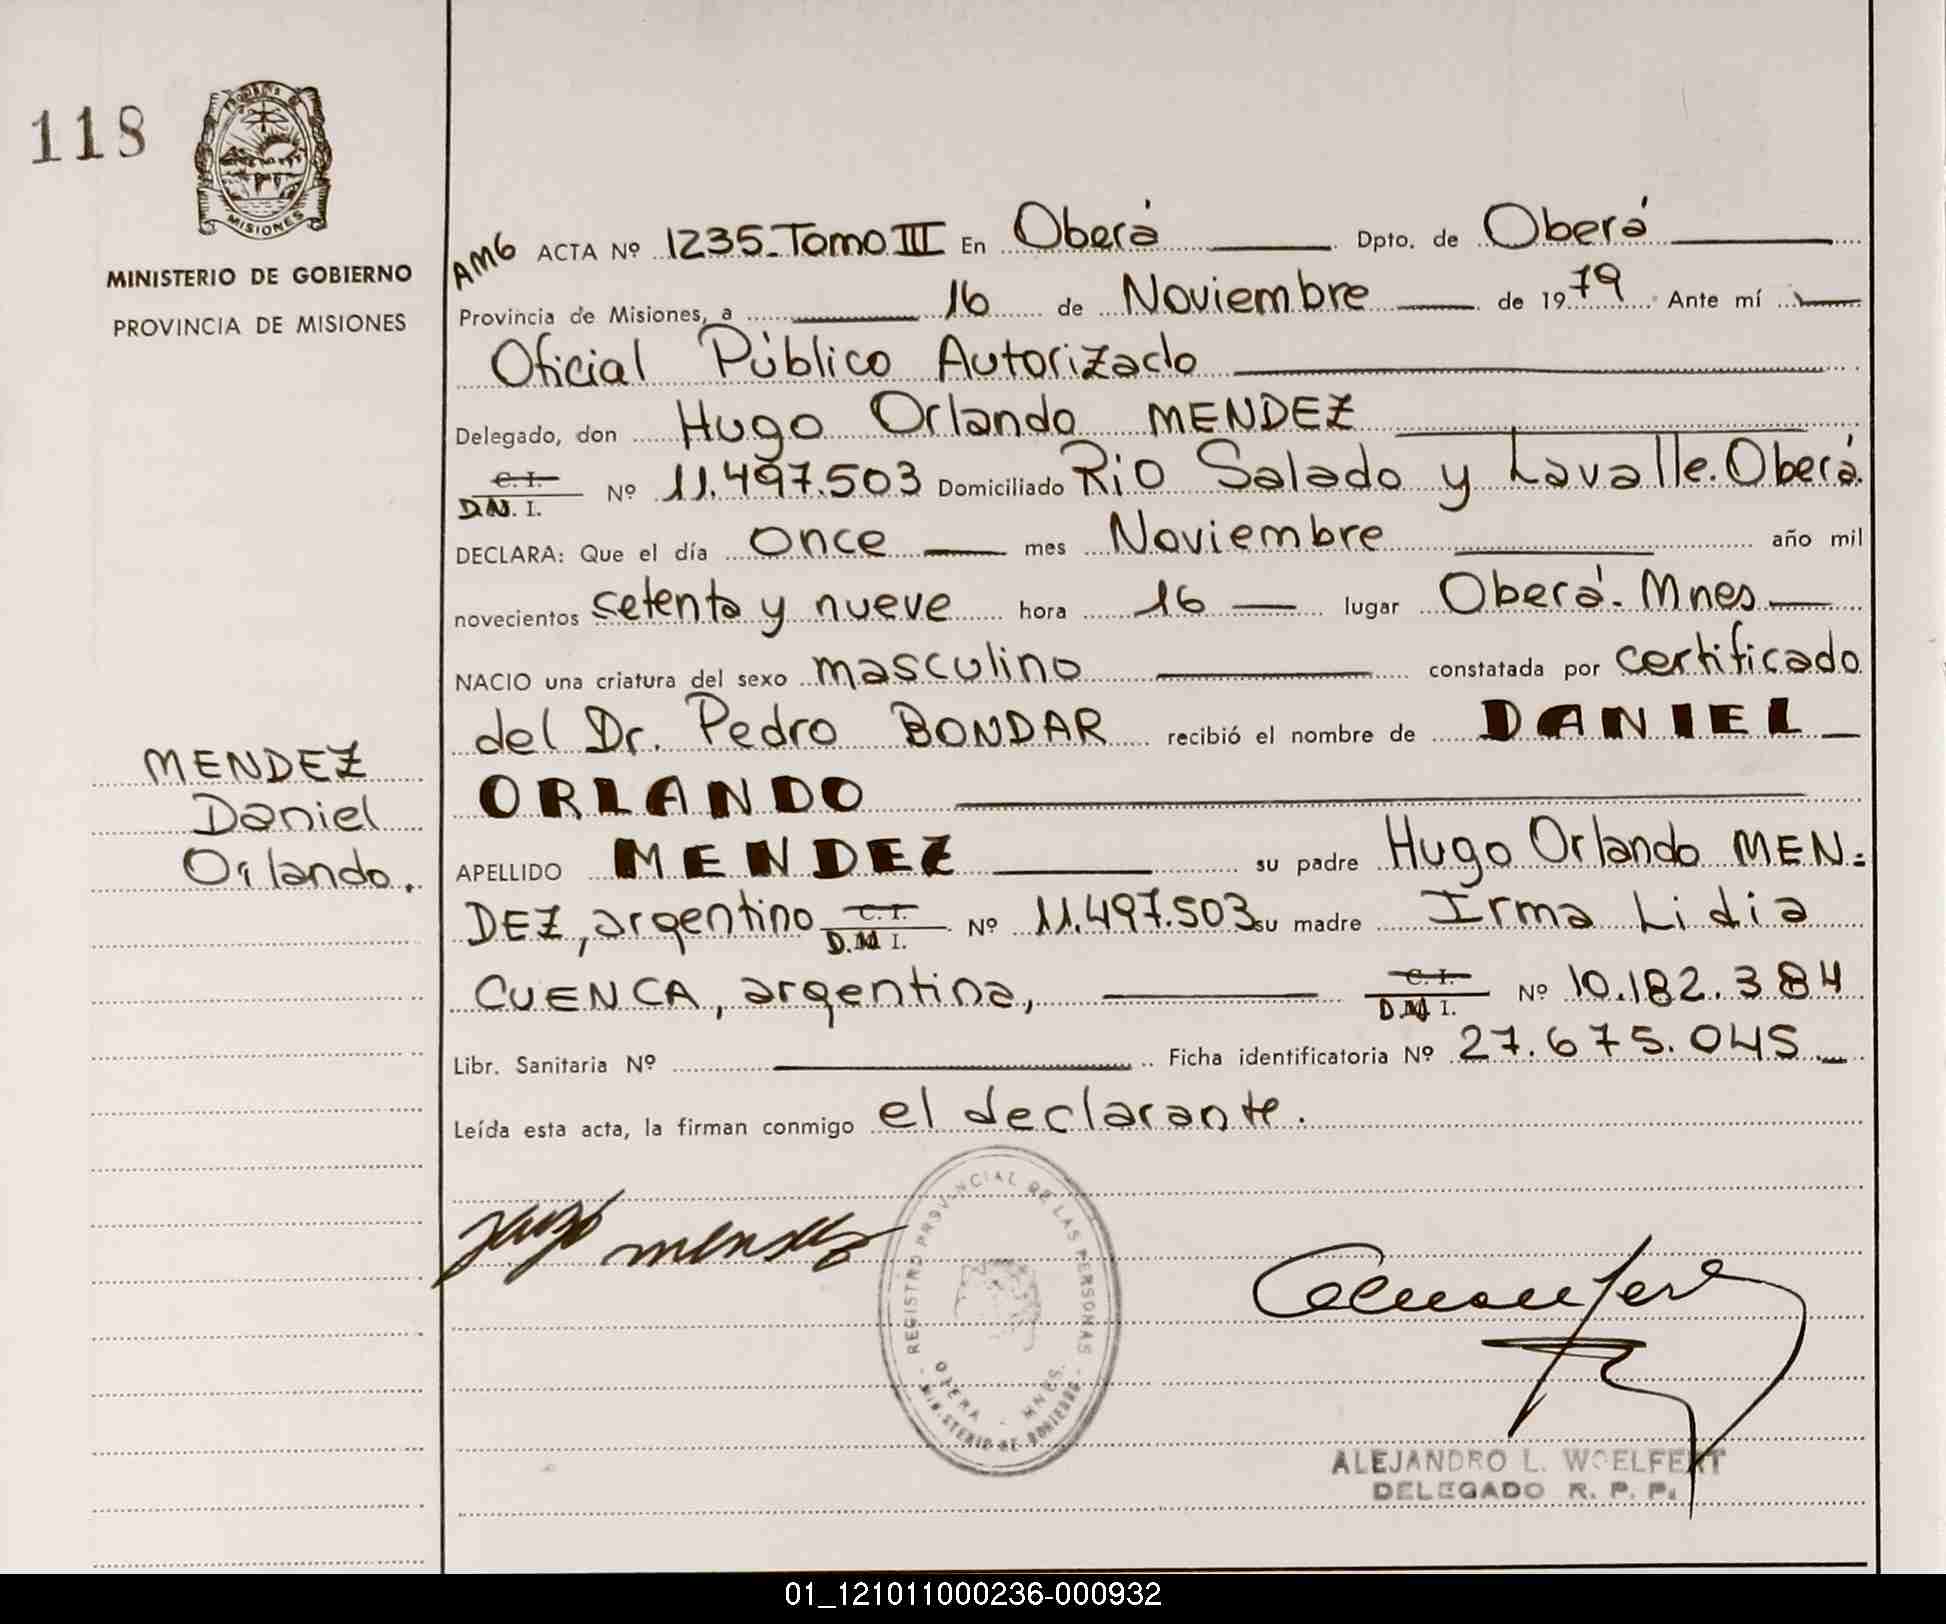 118
PROVINCIA DE
MISIONES
MINISTERIO DE GOBIERNO
PROVINCIA DE MISIONES
AMG ACTA Nº 1235-Tomo III En Oberá Dpto. de Oberá
Provincia de Misiones, a 16 de Noviembre de 1979 Ante mí
Oficial Público Autorizado
Delegado, don Hugo Orlando MENDEZ
C. I.
D.N. I. Nº 11.497.503 Domiciliado Rio Salado y Lavalle. Oberá.
DECLARA: Que el día once mes Noviembre año mil
novecientos setenta y nueve hora 16 lugar Oberá. Mnes
NACIO una criatura del sexo masculino constatada por certificado
del Dr. Pedro BONDAR recibió el nombre de DANIEL
ORLANDO
APELLIDO MENDEZ su padre Hugo Orlando MEN=
DEZ, argentino C. I. D.N I. Nº 11.497.503 su madre Irma Lidia
CUENCA, argentina, C. I. D.N I. Nº 10.182.384
Libr. Sanitaria Nº Ficha identificatoria Nº 27.675.045
Leída esta acta, la firman conmigo el declarante.
MENDEZ
Daniel
Orlando.
mendez
REGISTRO PROVINCIAL DE LAS PERSONAS
OBERA - MNES.
MINISTERIO DE GOBIERNO
ALEJANDRO L. WOELFERT
DELEGADO R. P. P.
01_121011000236-000932